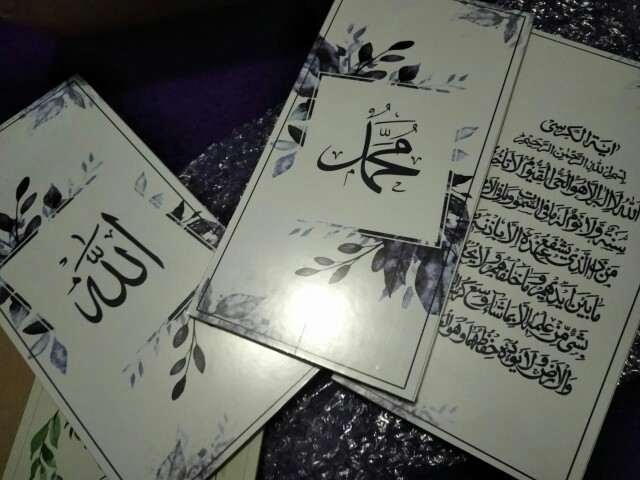 الله
محمد
آية الكرسي
بسم الله الرحمن الرحيم
الله لا إله إلا هو الحي القيوم لا تأخذه
سنة ولا نوم له ما في السموات وما في الأرض
من ذا الذي يشفع عنده إلا بإذنه
ما بين أيديهم وما خلفهم ولا يحيطون
بشيء من علمه إلا بما شاء وسع كرسيه
والأرض ولا يؤده حفظهما وهو